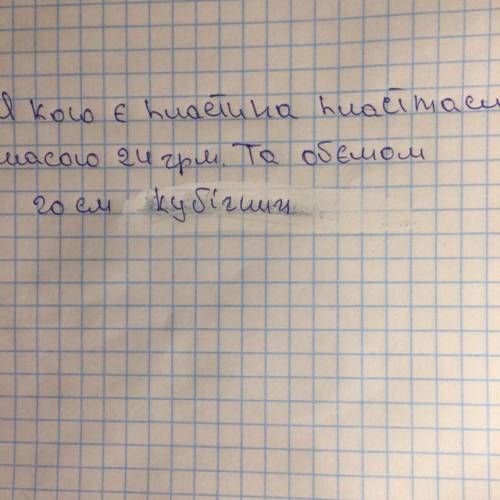 кого є пластина пластмас
масою 24 грм. Та обємом
20 см кубічних